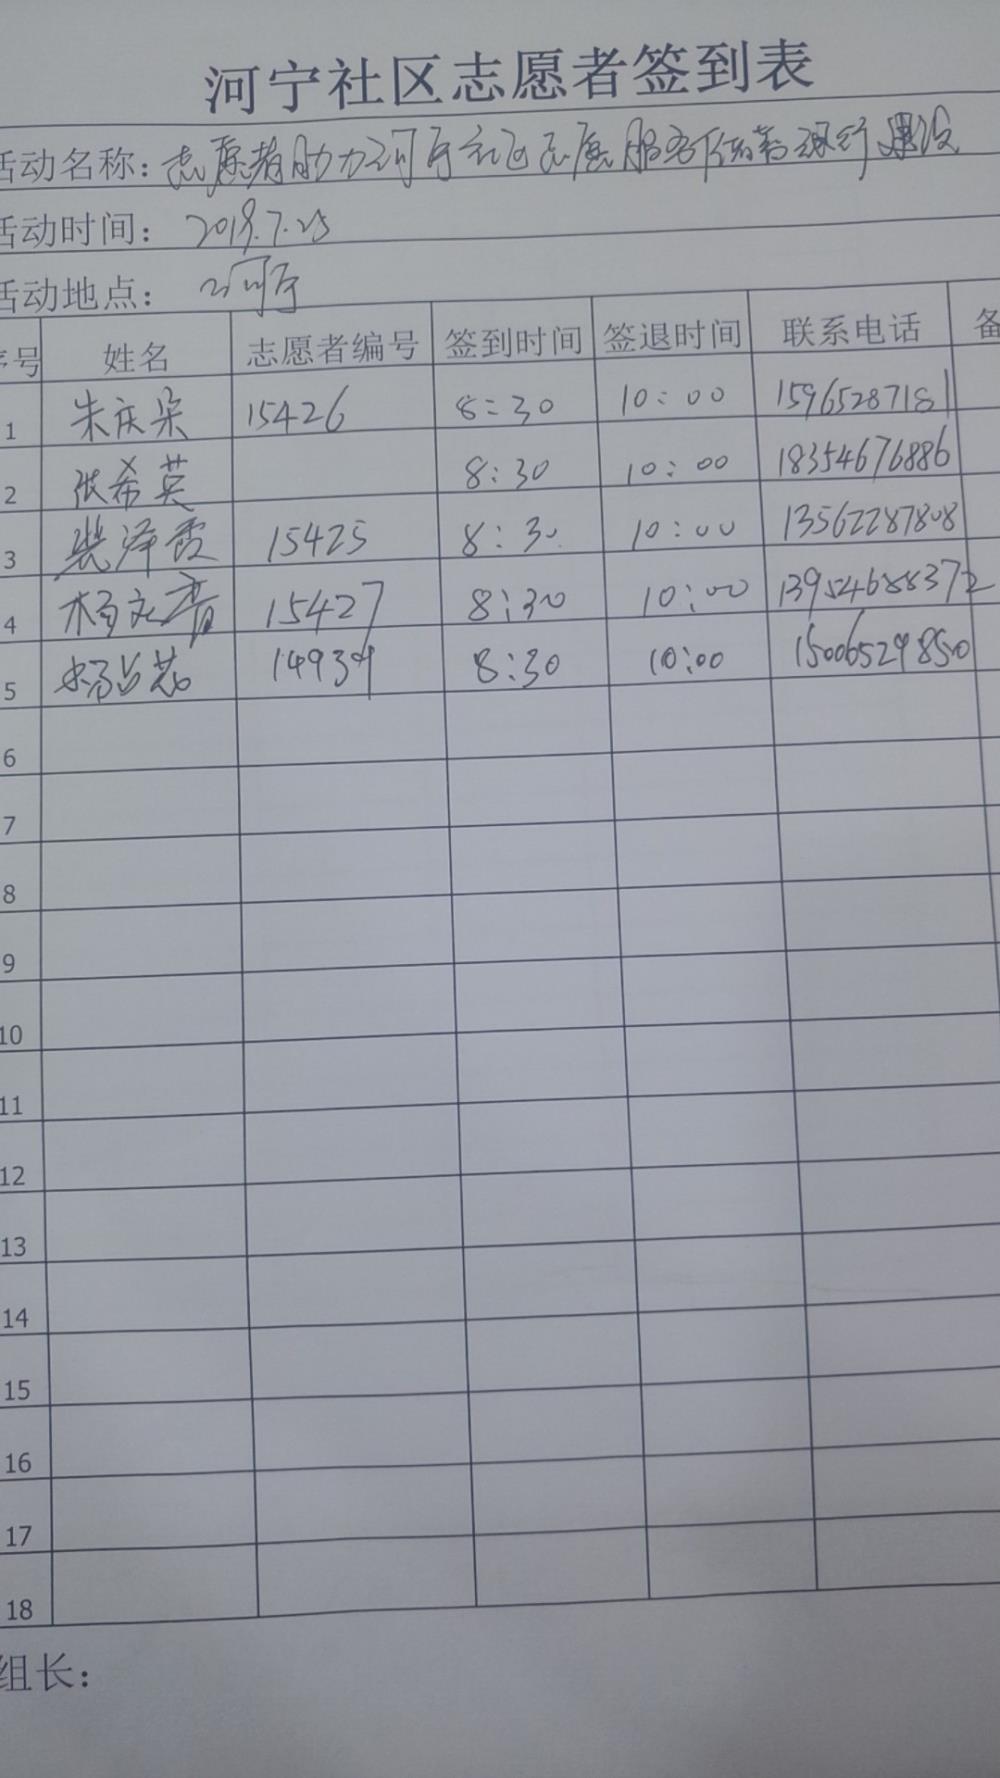 河宁社区志愿者签到表
活动名称：志愿者助力河宁社区志愿服务体系 建设
活动时间： 2019.7.25
活动地点： 河宁
序号 姓名 志愿者编号 签到时间 签退时间 联系电话 备
1 朱庆朵 15426 8:30 10:00 15965287181
2 张希英 8:30 10:00 18354676886
3 裴泽霞 15425 8:30 10:00 13562287808
4 杨文青 15427 8:30 10:00 13954688372
5 杨 芯 8:30 10:00 15006529850
6
7
8
9
10
11
12
13
14
15
16
17
18
组长：